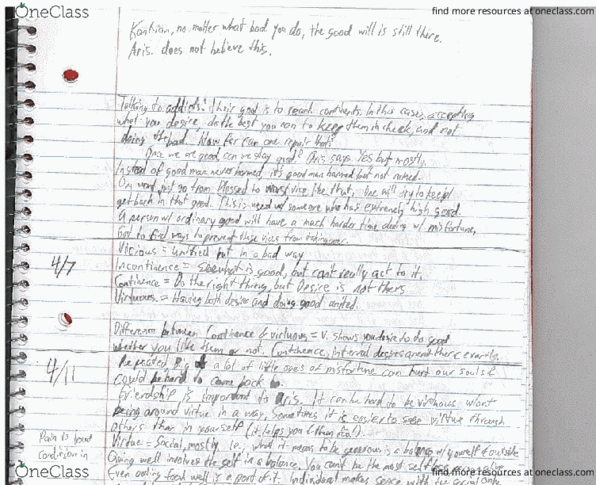 OneClass
find more resources at oneclass.com
Kantian, no matter what bad you do, the good will is still there.
Aris. does not believe this.
Talking to addicts: their goal is to reach continents. In this case, accepting
what you desire do the best you can to keep them in check, and not
doing bad. How far can one repair their
Once we are good can we stay good? Aris says Yes but mostly,
Instead of good man never harmed, it's good man harmed but not ruined.
One will try to keep
get back in that good. This is need w/ someone who has extremely high good.
A person w/ ordinary good will have a much harder time dealing w/ misfortune,
Got to find ways to prevent these vices from
4/7
Vicious = unified but in a bad way
Incontinence = see what is good, but can't really act to it.
Continence = Do the right thing, but Desire is not there
Virtuous = Having both desire and doing good united.
Difference between Continence & virtuous = V. shows you desire to do good
whether you like them or not. Continence, internal desires aren't there exactly.
4/11
Repeated Big a lot of little ones of misfortune can hurt our souls &
could be hard to come back
friendship is important to Aris. It can be hard to be virtuous w/out
being around virtue in a way. Sometimes it is easier to see virtue through
others than in yourself (it helps you & them too!)
Pain is
condition in
Virtue = Social, mostly i.e. what it means to be generous is a balance w/ yourself & outside
Giving well involves the self in a balance. You can't be the most self
Even eating food well is a part of it. Individual makes sense with the social only.
OneClass
find more resources at oneclass.com